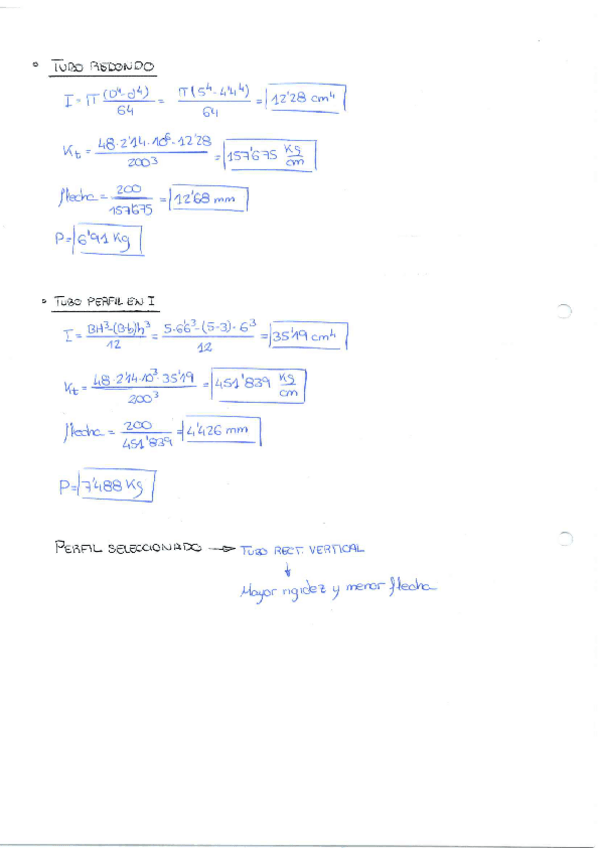 ° TUBO REDONDO
I = π (D⁴-d⁴)/64 = π(5⁴-4'4⁴)/64 = 12'28 cm⁴
Kt = 48·2'14·10⁶·12'28/200³ = 157'675 Kg/cm
flecha = 200/157'675 = 12'68 mm
P= 6'91 Kg
° TUBO PERFIL EN I
I = BH³-(B-b)h³/12 = 5·6'6³-(5-3)·6³/12 = 35'19 cm⁴
Kt = 48·2'14·10³·35'19/200³ = 451'839 Kg/cm
flecha = 200/451'839 = 4'426 mm
P= 7'488 Kg
PERFIL SELECCIONADO → TUBO RECT. VERTICAL
↓
Mayor rigidez y menor flecha